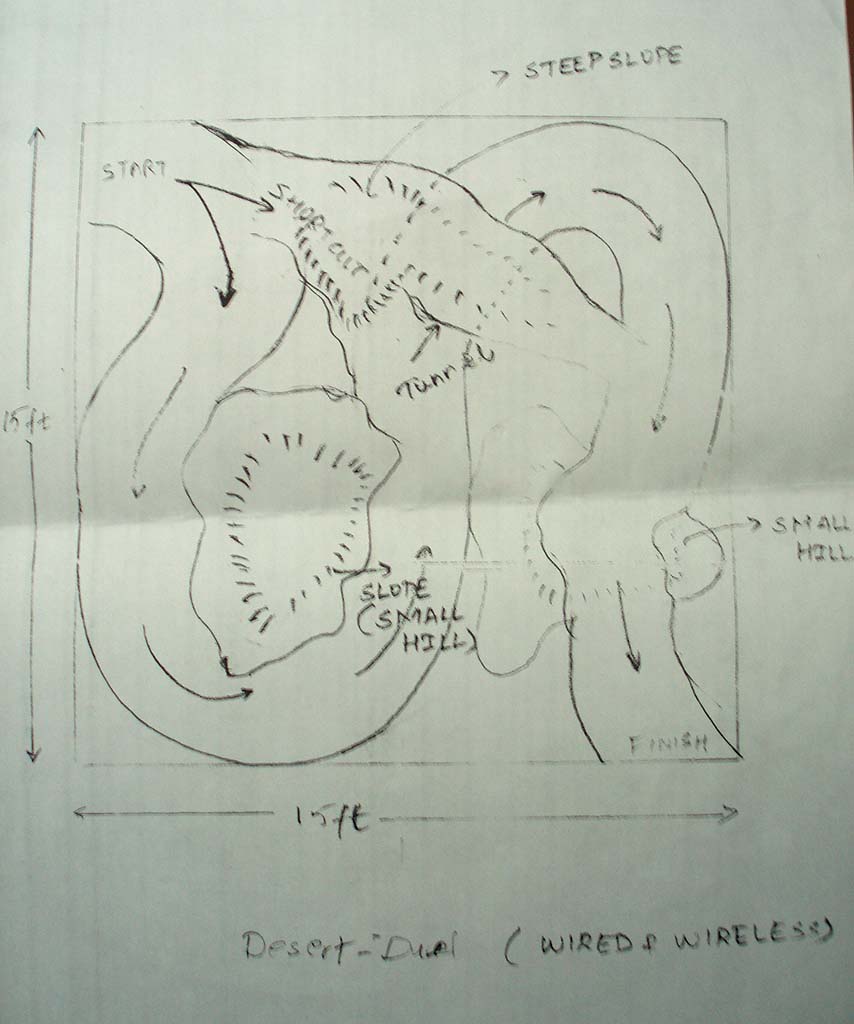 STEEP SLOPE
START
SHORT CUT
Tunnel
15ft
SMALL
HILL
SLOPE
(SMALL
HILL)
FINISH
15ft
Desert-Duel (WIRED & WIRELESS)